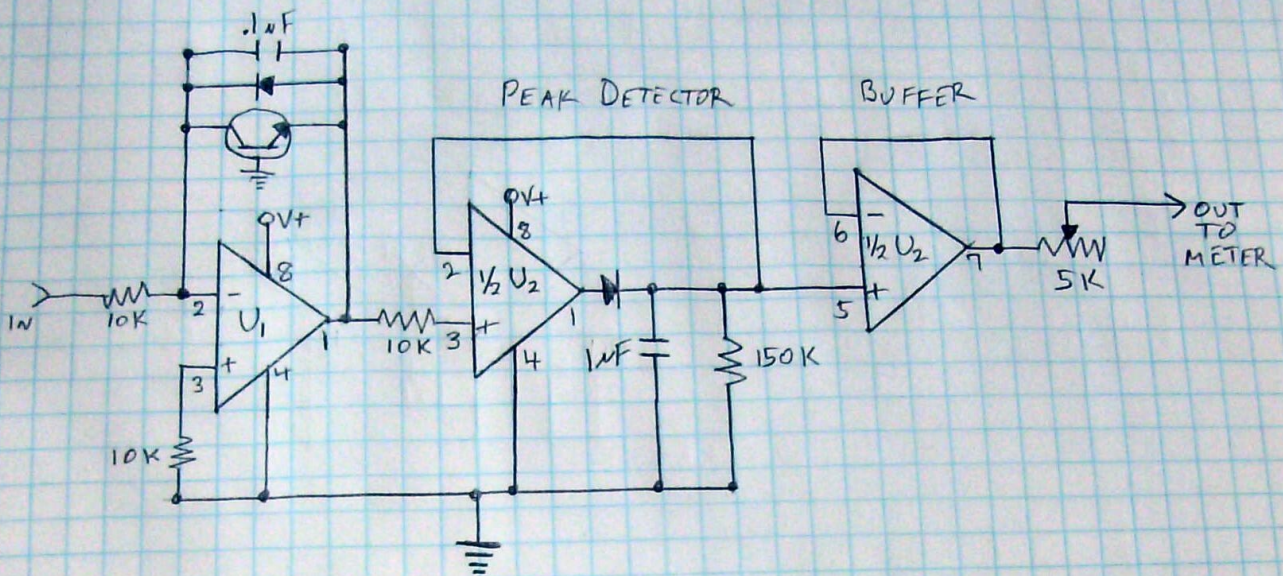 .1uF
PEAK DETECTOR
BUFFER
V+
8
IN
10K
2
-
U1
1
3
+
4
10K
10K
V+
8
2
1/2 U2
3
+
1
4
1uF
150K
6
-
1/2 U2
7
5
+
5K
OUT
TO
METER